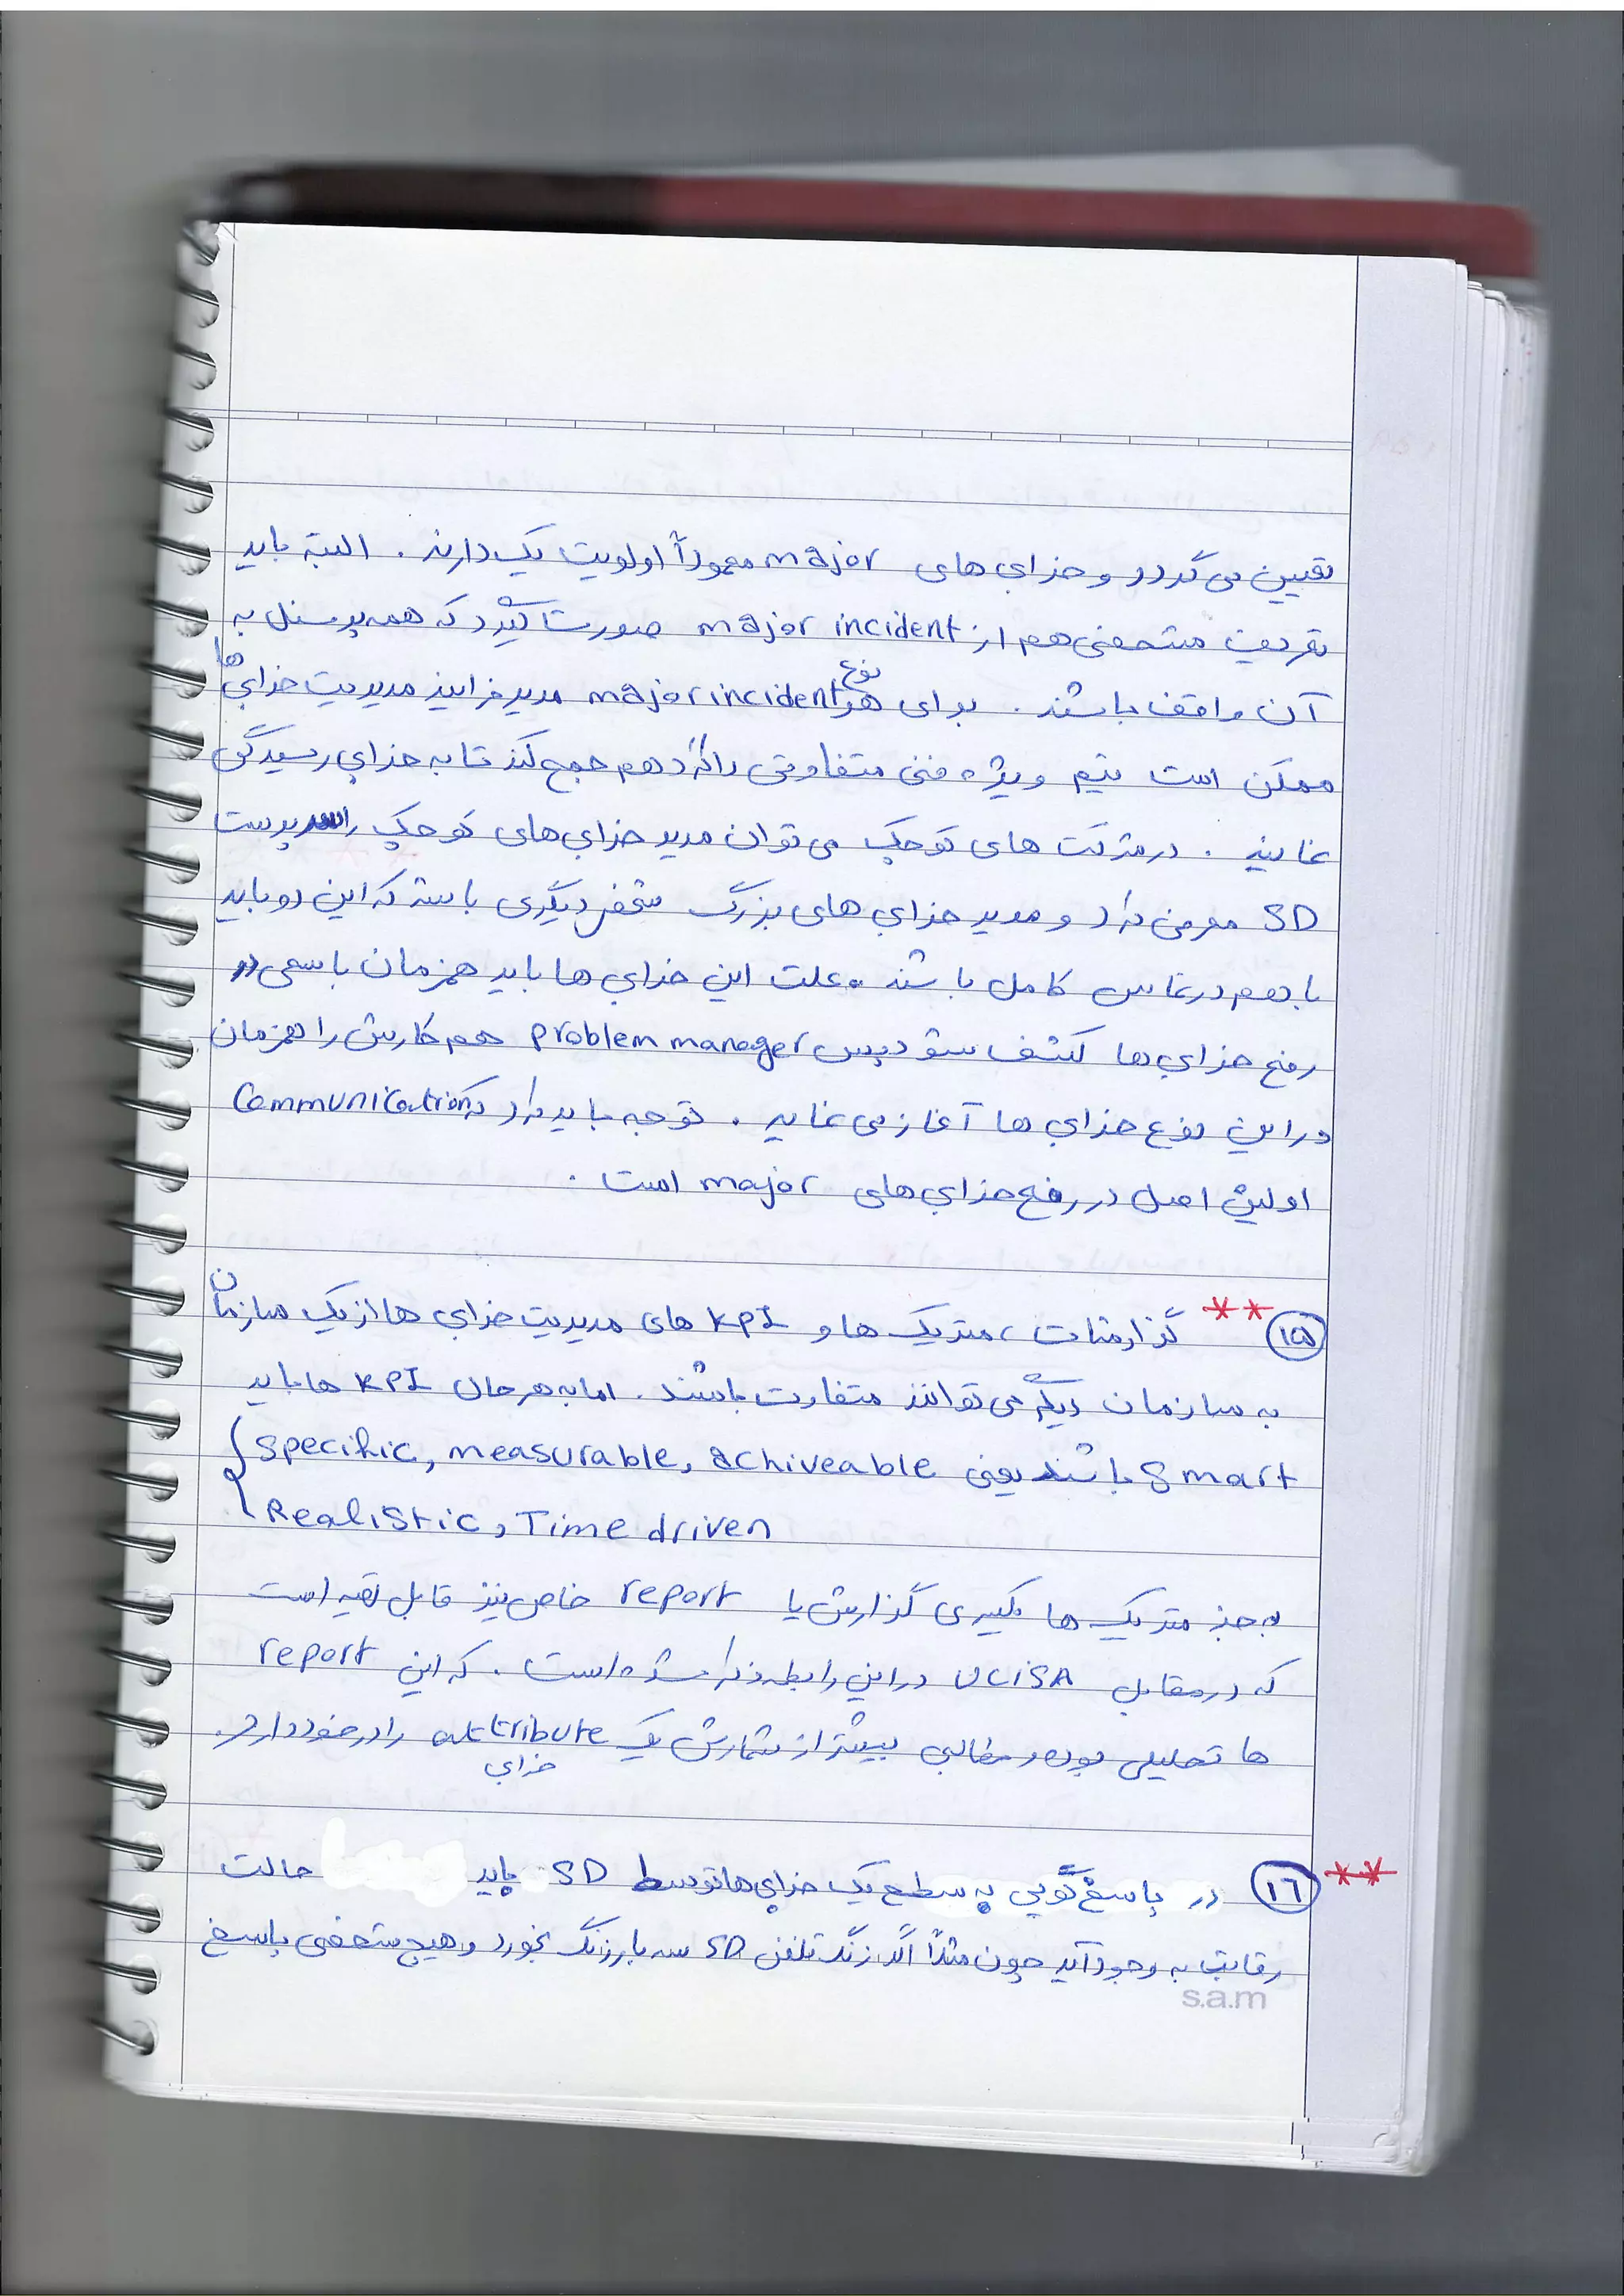 تعیین می‌گردد و خرابی های major معمولاً اولویت یک دارند . البته باید
تعریف مشخصی هم از major incident صورت گیرد که همه پرسنل به
آن واقف باشند . برای هر نوع major incident مدیر فرایند مدیریت خرابی ها
ممکن است تیم ویژه فنی متفاوتی را گرد هم جمع کند تا به خرابی رسیدگی
نمایند . در شرکت های کوچک می توان مدیر خرابی های کوچک را سرپرست
SD معرفی کرد و مدیر خرابی های بزرگ شخص دیگری باشد که این دو باید
با هم در تماس کامل باشند . علت این خرابی ها باید همزمان با سعی در
رفع خرابی ها کشف شود پس problem manager هم کارش را همزمان
در این نوع خرابی ها آغاز می نماید . توجه باید کرد که Communication
اولین اصل در رفع خرابی های major است .
** ۱۵ گزارشات ، متریک ها و KPI های مدیریت خرابی ها از یک سازمان
به سازمان دیگر می توانند متفاوت باشند . اما به هر حال KPI ها باید
Smart باشند یعنی Specific, measurable, achiveable
Realistic, Time driven
به جز متریک ها یکسری گزارش یا report خاص نیز قابل تهیه است
که در مقابل UCISA در این رابطه ذکر شده است . که این report
ها تحلیلی بوده و مطالبی بیشتر از شمارش یک attribute را در خود دارند.
خرابی
** ۱۶ در پاسخ گویی به سطح یک خرابی ها توسط SD باید حالت
رقابت به وجود آید چون مثلاً اگر زنگ تلفن SD سه بار زنگ بخورد و هیچ شخصی پاسخ
s.a.m